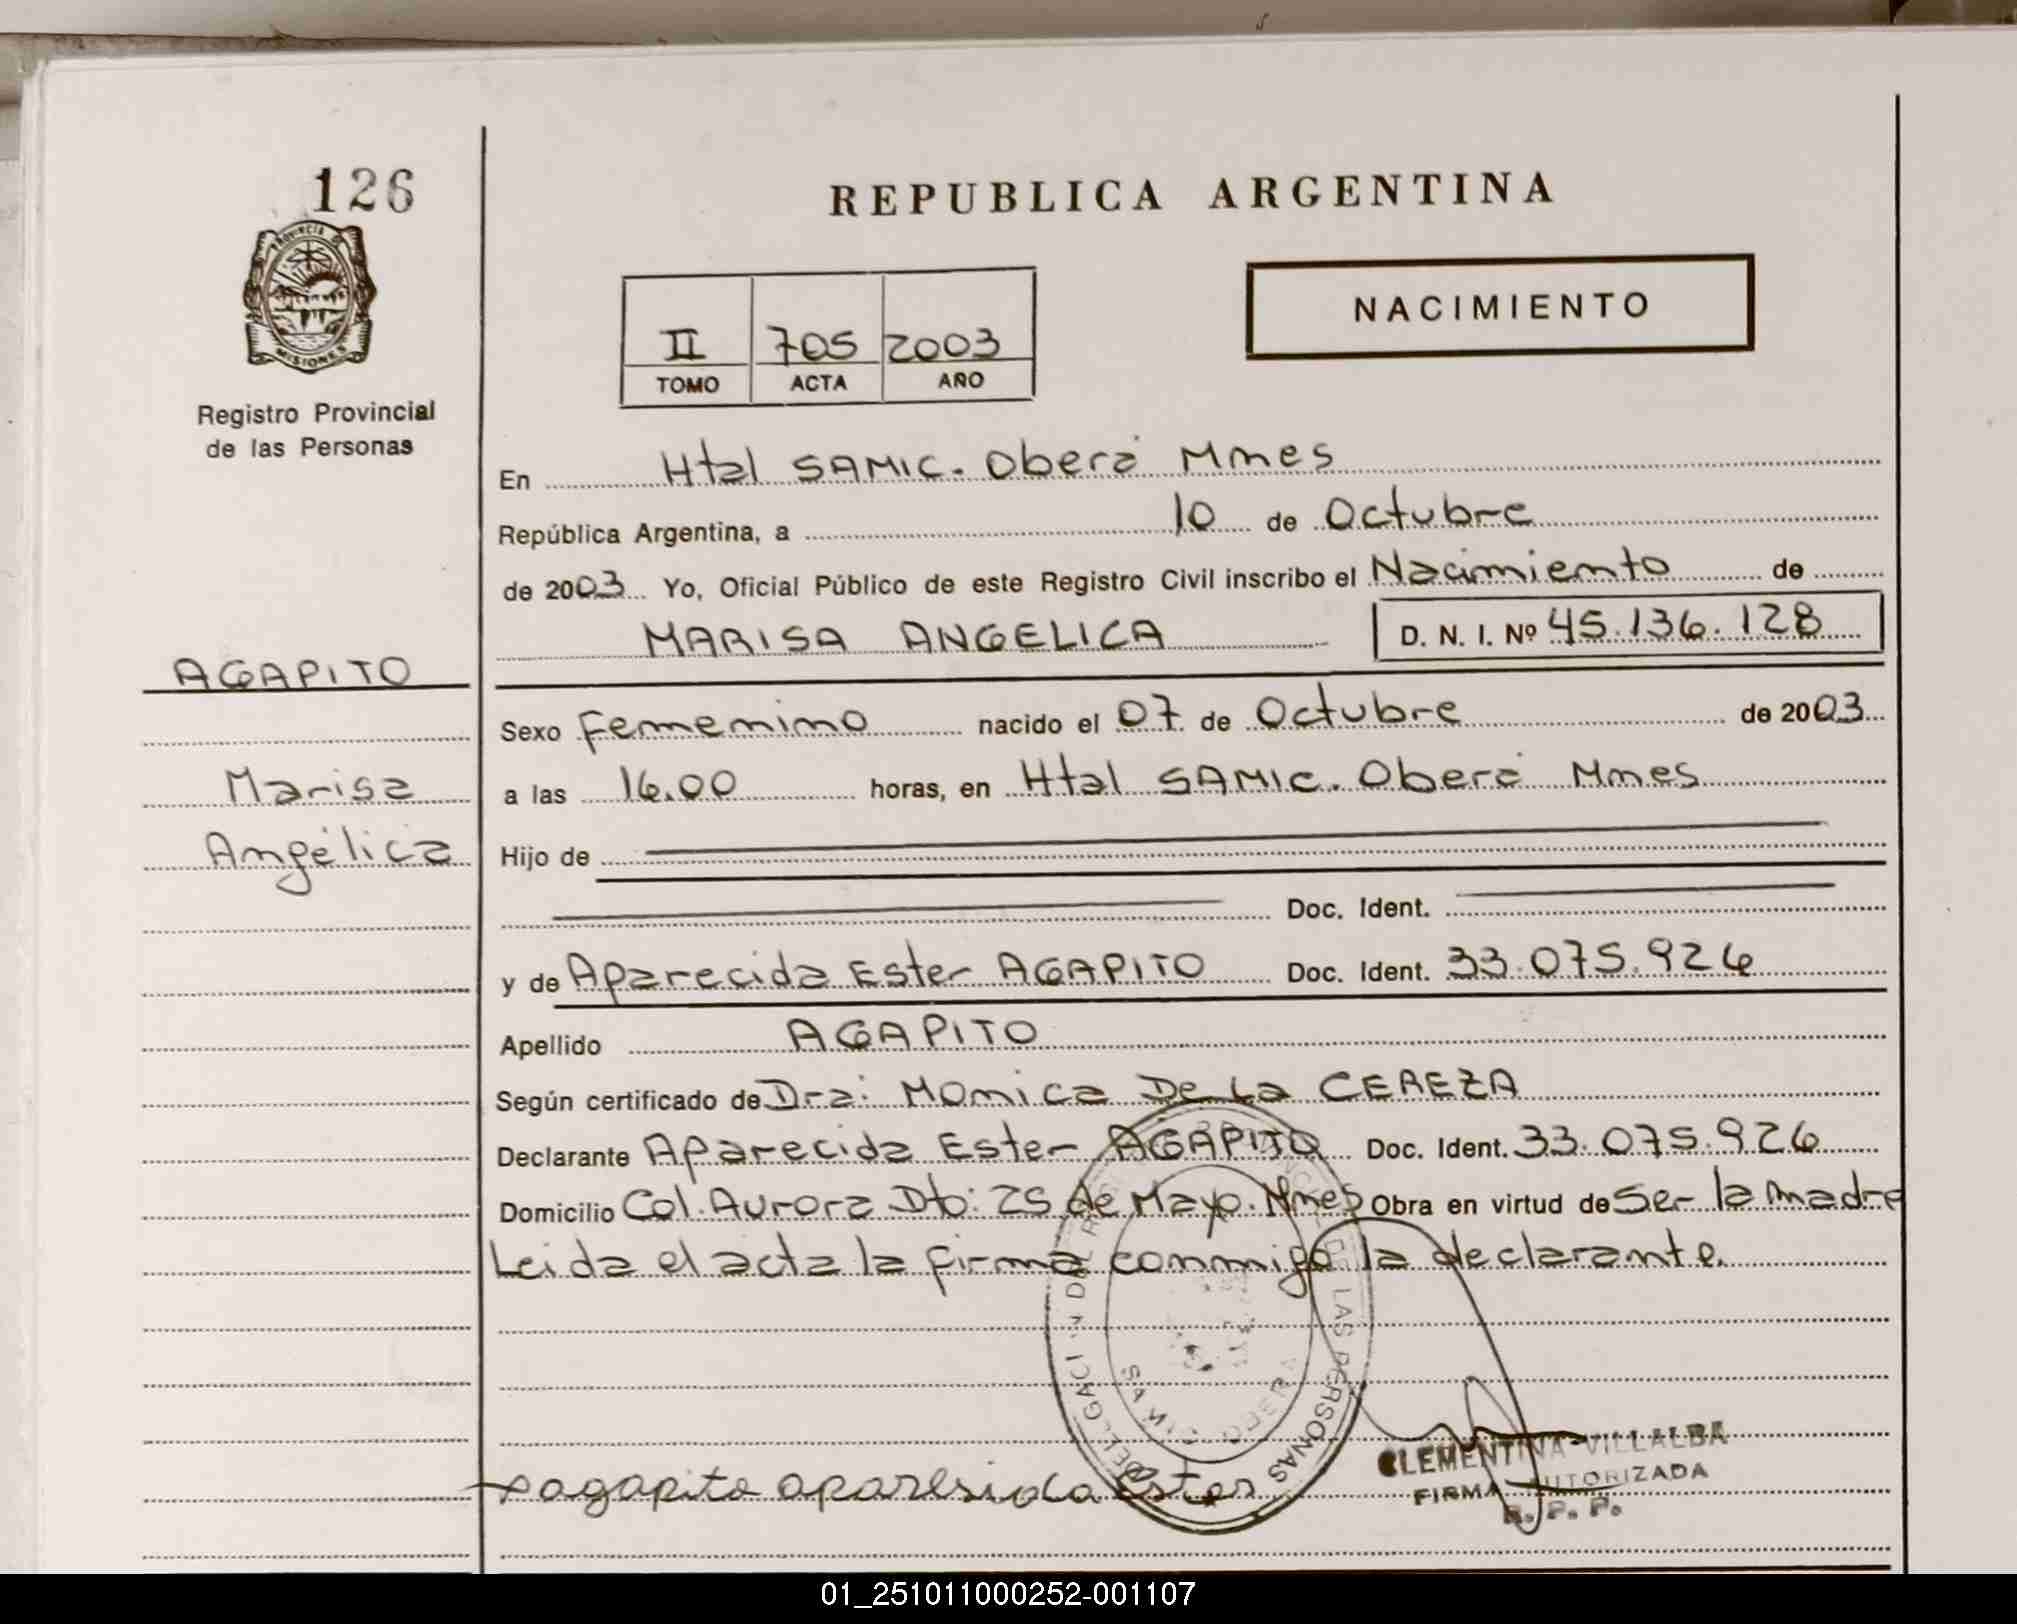 126
PROVINCIA DE
MISIONES
Registro Provincial
de las Personas
REPUBLICA ARGENTINA
II 705 2003
TOMO ACTA AÑO
NACIMIENTO
En Htal SAMIC. Oberá Mnes
República Argentina, a 10 de Octubre
de 2003 Yo, Oficial Público de este Registro Civil inscribo el Nacimiento de
MARISA ANGELICA D. N. I. Nº 45.136.128
AGAPITO
Marisa
Angélica
Sexo Femenino nacido el 07 de Octubre de 2003
a las 16.00 horas, en Htal SAMIC. Oberá Mnes
Hijo de
Doc. Ident.
y de Aparecida Ester AGAPITO Doc. Ident. 33.075.926
Apellido AGAPITO
Según certificado de Dra: Monica De La CEREZA
Declarante Aparecida Ester AGAPITO Doc. Ident. 33.075.926
Domicilio Col. Aurora Dto: 25 de Mayo. Mnes Obra en virtud de Ser la madre
Leida el acta la firma conmigo la declarante.
LAS PERSONAS
agapito aparesida Ester
CLEMENTINA VILLALBA
FIRMA AUTORIZADA
R. P. P.
01_251011000252-001107